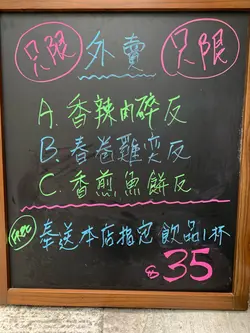 只限 外賣 只限
A. 香辣肉碎反
B. 春卷雞奕反
C. 香煎魚餅反
奉送本店指定飲品1杯
$35